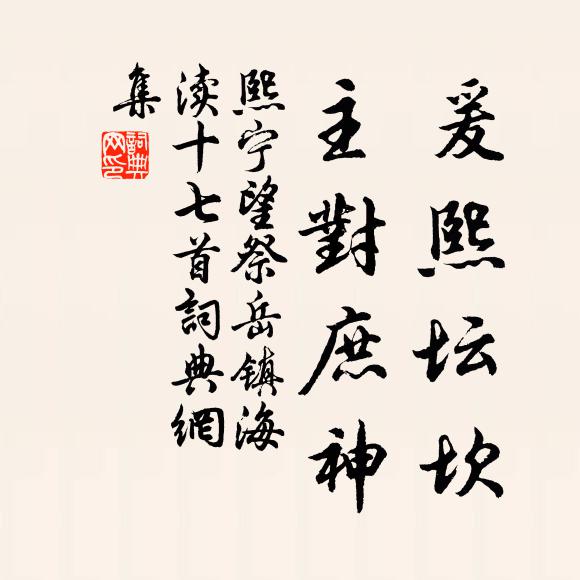 爰熙坛坎
主對庶神
熙宁望祭岳鎮海
渎十七首詞典網
集
詞典網印